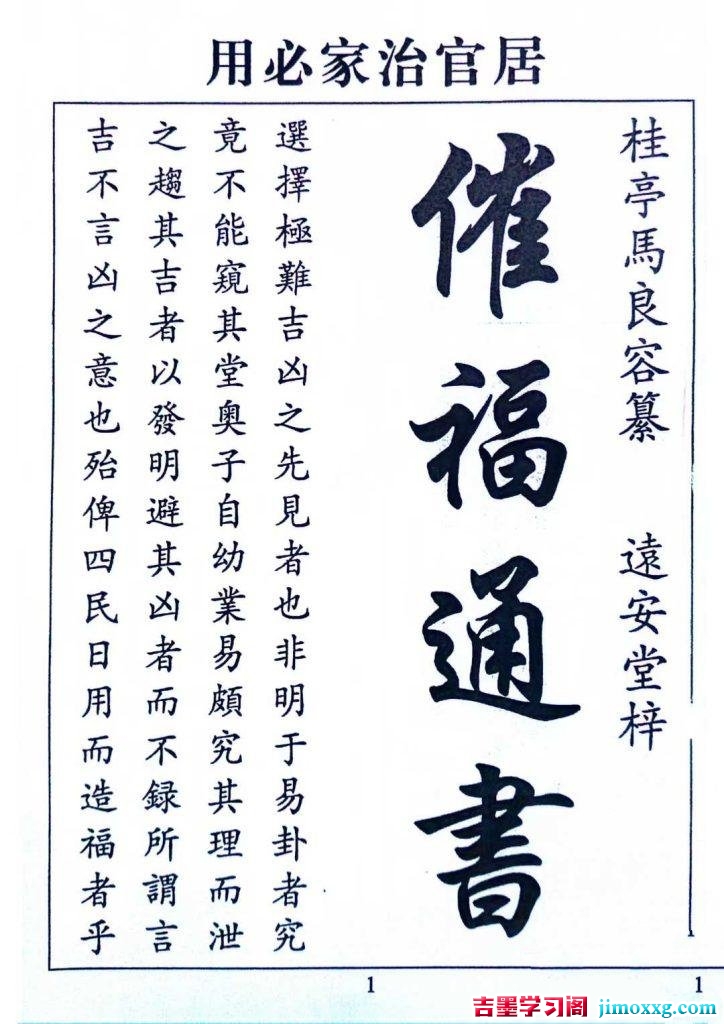 居官治家必用
桂亭馬良容纂 遠安堂梓
催福通書
選擇極難吉凶之先見者也非明于易卦者究
竟不能窺其堂奥子自幼業易頗究其理而泄
之趨其吉者以發明避其凶者而不録所謂言
吉不言凶之意也殆俾四民日用而造福者乎
1
1
吉墨学习阁 jimoxxg.com